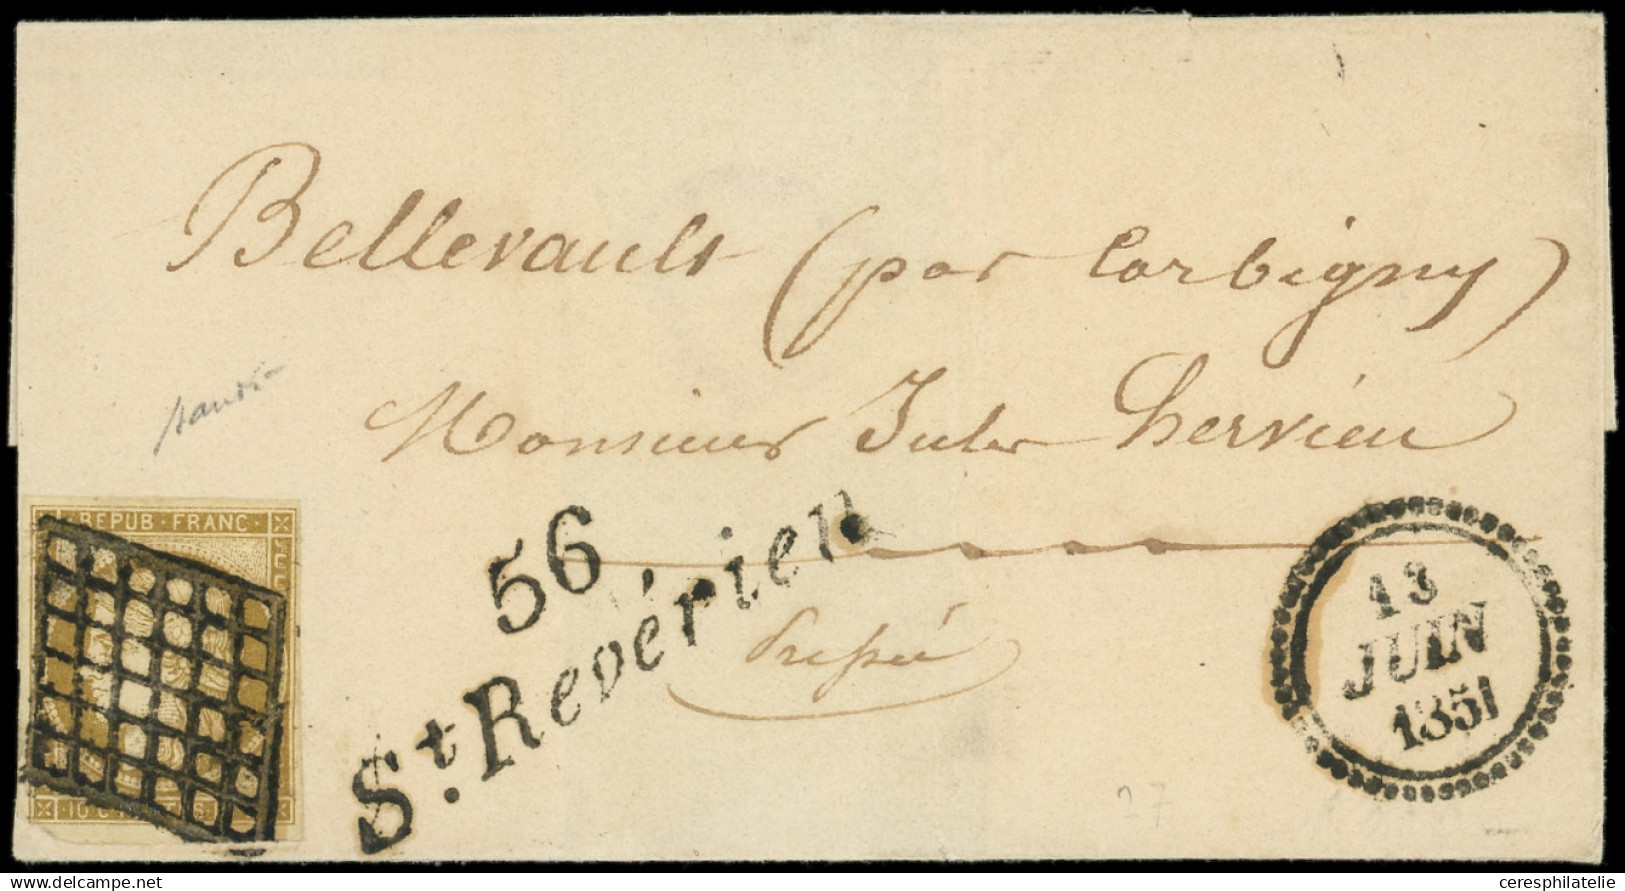 Bellevault (par Corbigny)
Monsieur Jules Hervieu
REPUB · FRANC ·
56
St. Revérien
13
JUIN
1851
Pressée
27
delcampe.net
ceresphilatelie